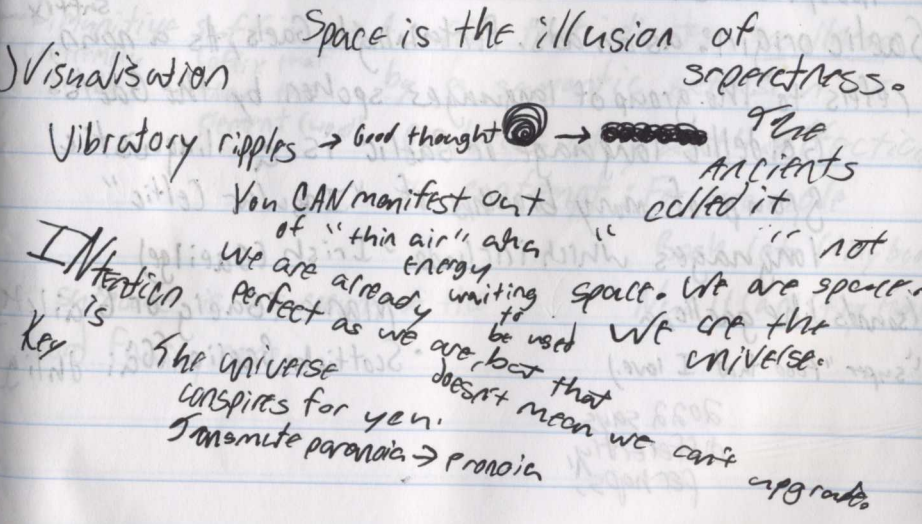 Space is the illusion of
seperatness.
Visualisation
Vibratory ripples → Good thought → 
The
Ancients
called it
" " not
space. We are space.
We are the
universe.
You CAN manifest out
of "thin air" aka
energy
waiting
to
be used
INtention
is
Key
We are already
perfect as we
are but that
doesn't mean we can't
upgrade.
The universe
conspires for you.
Transmute paranoia → pronoia